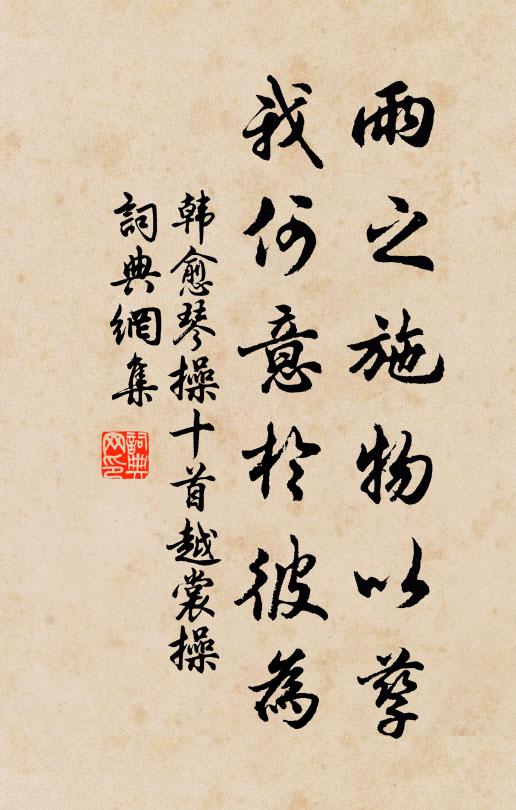 雨之施物以孳
我何意於彼為
韩愈琴操十首越裳操
詞典網集
詞典网印